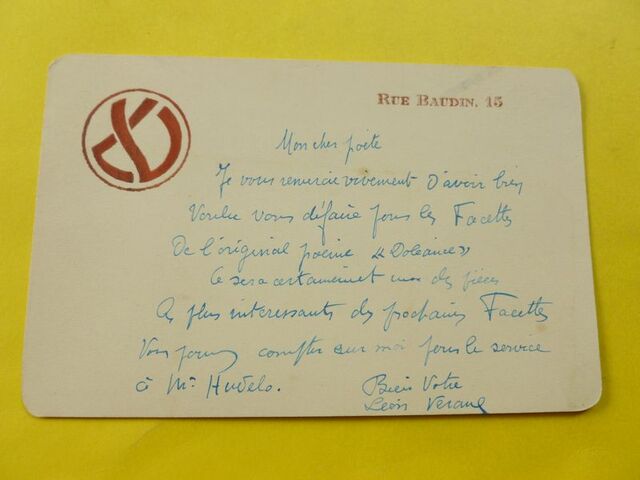 RUE BAUDIN. 15
Mon cher poète
Je vous remercie vivement d'avoir bien
voulu vous défaire pour les Facettes
De l'original poème « Doléance »
Ce sera certainement une des pièces
les plus interessants des prochaines Facettes
Vous pouvez compter sur moi pour le service
à Mr Hudelo.
Bien Votre
Léon Verane